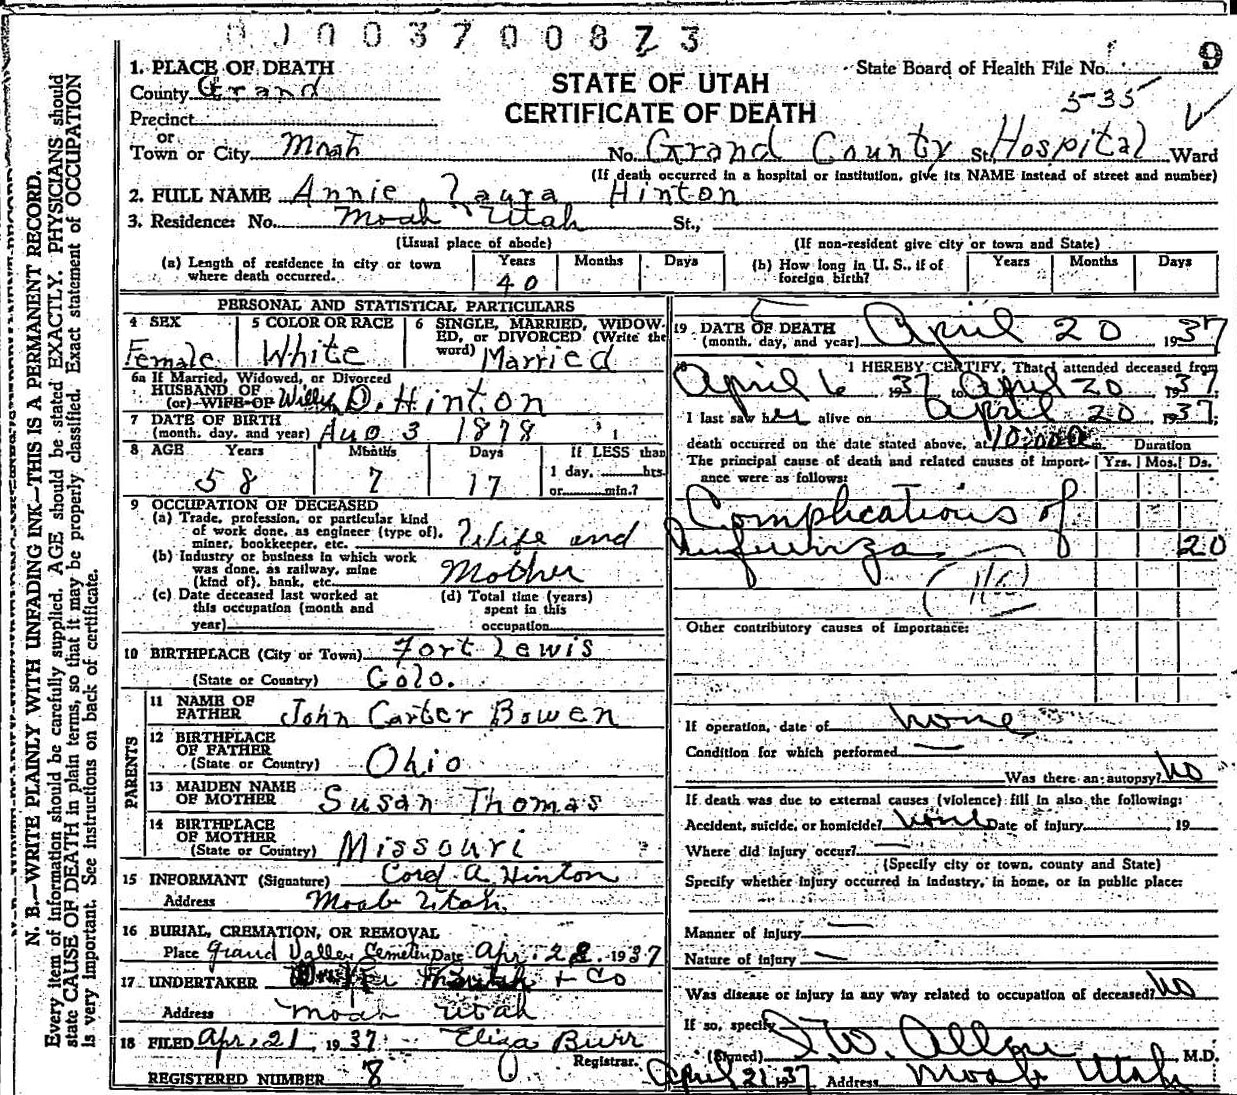 0 1 0 0 3 7 0 0 8 7 3
9
State Board of Health File No.
535
STATE OF UTAH
CERTIFICATE OF DEATH
1. PLACE OF DEATH
County Grand
Precinct
or
Town or City Moab
No. Grand County St. Hospital Ward
(If death occurred in a hospital or institution, give its NAME instead of street and number)
2. FULL NAME Annie Laura Hinton
3. Residence: No. Moab Utah St.,
(Usual place of abode) (If non-resident give city or town and State)
(a) Length of residence in city or town where death occurred. Years 40 Months Days
(b) How long in U. S., if of foreign birth? Years Months Days
PERSONAL AND STATISTICAL PARTICULARS
4 SEX Female
5 COLOR OR RACE White
6 SINGLE, MARRIED, WIDOWED, OR DIVORCED (Write the word) Married
6a If Married, Widowed, or Divorced
HUSBAND OF
(or) WIFE OF D. Hinton
7 DATE OF BIRTH
(month, day, and year) Aug 3 1878
8 AGE Years 58 Months 7 Days 17 If LESS than 1 day, hrs. or min.?
9 OCCUPATION OF DECEASED
(a) Trade, profession, or particular kind of work done, as engineer (type of), miner, bookkeeper, etc. Wife and
(b) Industry or business in which work was done, as railway, mine (kind of), bank, etc. Mother
(c) Date deceased last worked at this occupation (month and year)
(d) Total time (years) spent in this occupation
10 BIRTHPLACE (City or Town) Fort Lewis
(State or Country) Colo.
PARENTS
11 NAME OF FATHER John Carter Bowen
12 BIRTHPLACE OF FATHER (State or Country) Ohio
13 MAIDEN NAME OF MOTHER Susan Thomas
14 BIRTHPLACE OF MOTHER (State or Country) Missouri
15 INFORMANT (Signature) A Hinton
Address Moab Utah
16 BURIAL, CREMATION, OR REMOVAL
Place Grand Valley Cemetery Date Apr. 1937
17 UNDERTAKER & Co
Address Moab Utah
18 FILED Apr. 21 1937 Eliza Burr
Registrar.
REGISTERED NUMBER 8
19 DATE OF DEATH
(month, day, and year) April 20 1937
I HEREBY CERTIFY, That I attended deceased from
April 6 1937 to April 20, 1937
I last saw her alive on April 20 1937,
death occurred on the date stated above, at m. Duration
The principal cause of death and related causes of importance were as follows: Yrs. Mos. Ds.
Complications of
Influenza 20
Other contributory causes of importance:
If operation, date of none
Condition for which performed
Was there an autopsy? No
If death was due to external causes (violence) fill in also the following:
Accident, suicide, or homicide? none Date of injury 19
Where did injury occur?
(Specify city or town, county and State)
Specify whether injury occurred in industry, in home, or in public place:
Manner of injury
Nature of injury
Was disease or injury in any way related to occupation of deceased? No
If so, specify
(Signed) Allen M.D.
April 21 1937 Address Moab Utah
N. B.—WRITE PLAINLY WITH UNFADING INK—THIS IS A PERMANENT RECORD.
Every item of information should be carefully supplied. AGE should be stated EXACTLY. PHYSICIANS should
state CAUSE OF DEATH in plain terms, so that it may be properly classified. Exact statement of OCCUPATION
is very important. See instructions on back of certificate.